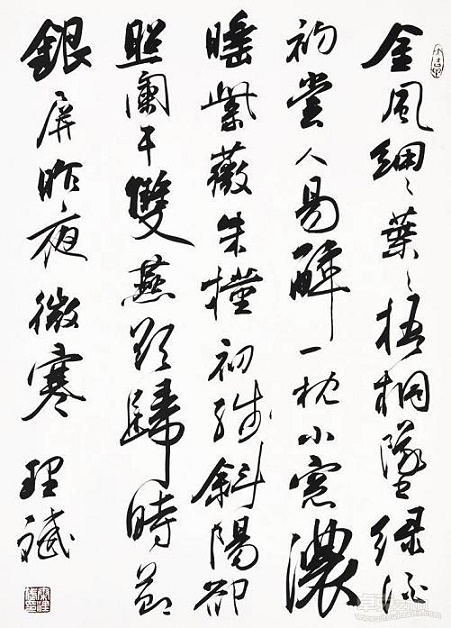 金風細々葉々梧桐墜綠酒
初嘗人易醉一枕小窓濃
睡紫薇朱槿初殘斜陽卻
照闌干雙燕欲歸時節
銀屏昨夜微寒 理斌